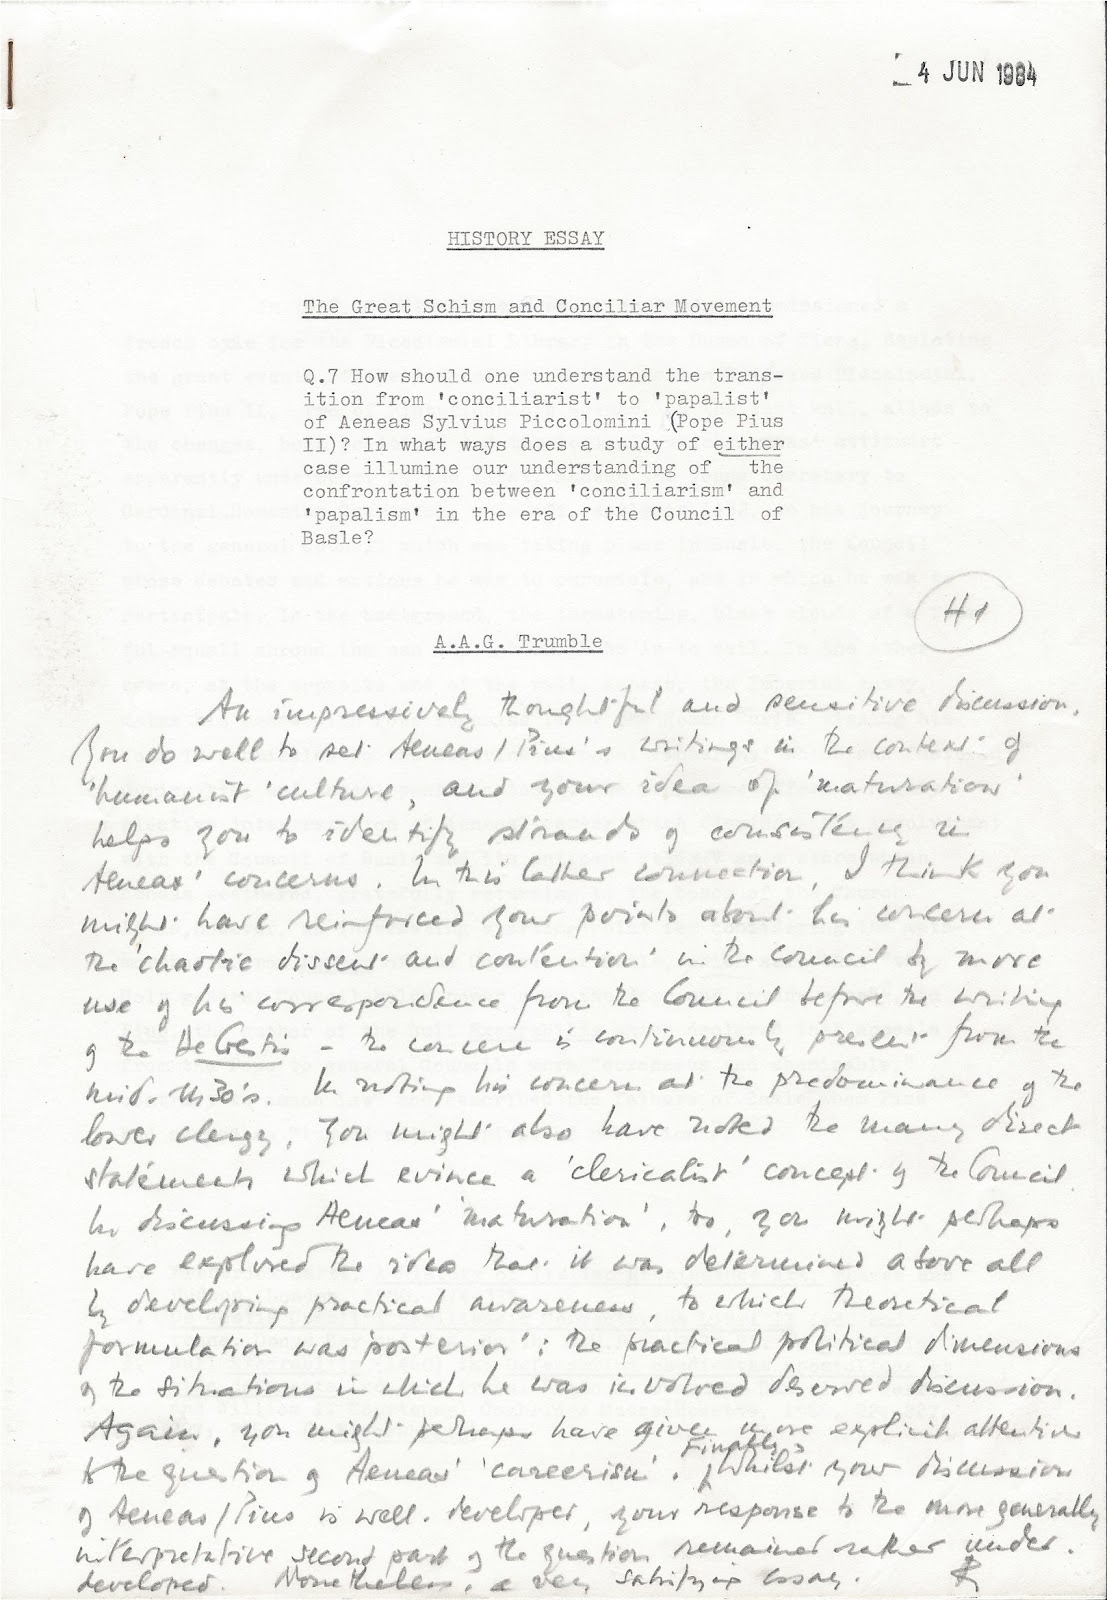 4 JUN 1984
HISTORY ESSAY
The Great Schism and Conciliar Movement
Q.7 How should one understand the trans-
ition from 'conciliarist' to 'papalist'
of Aeneas Sylvius Piccolomini (Pope Pius
II)? In what ways does a study of either
case illumine our understanding of the
confrontation between 'conciliarism' and
'papalism' in the era of the Council of
Basle?
H1
A.A.G. Trumble
An impressively thoughtful and sensitive discussion.
You do well to set Aeneas/Pius's writings in the context of
'humanist' culture, and your idea of 'maturation'
helps you to identify strands of consistency in
Aeneas' concerns. In this latter connection, I think you
might have reinforced your points about his concern at
the 'chaotic dissent and contention' in the council by more
use of his correspondence from the Council before the writing
of the De Gestis - the concern is continuously present from the
mid-1430's. In noting his concern at the predominance of the
lower clergy, you might also have noted the many direct
statements which evince a 'clericalist' concept of the Council.
In discussing Aeneas' 'maturation', too, you might perhaps
have explored the idea that it was determined above all
by developing practical awareness, to which theoretical
formulation was 'posterior': the practical political dimensions
of the situations in which he was involved deserved discussion.
Again, you might perhaps have given more explicit attention
to the question of Aeneas' 'careerism'. Finally, whilst your discussion
of Aeneas/Pius is well-developed, your response to the more generally
interpretative second part of the question remained rather under-
developed. Nonetheless, a very satisfying essay.